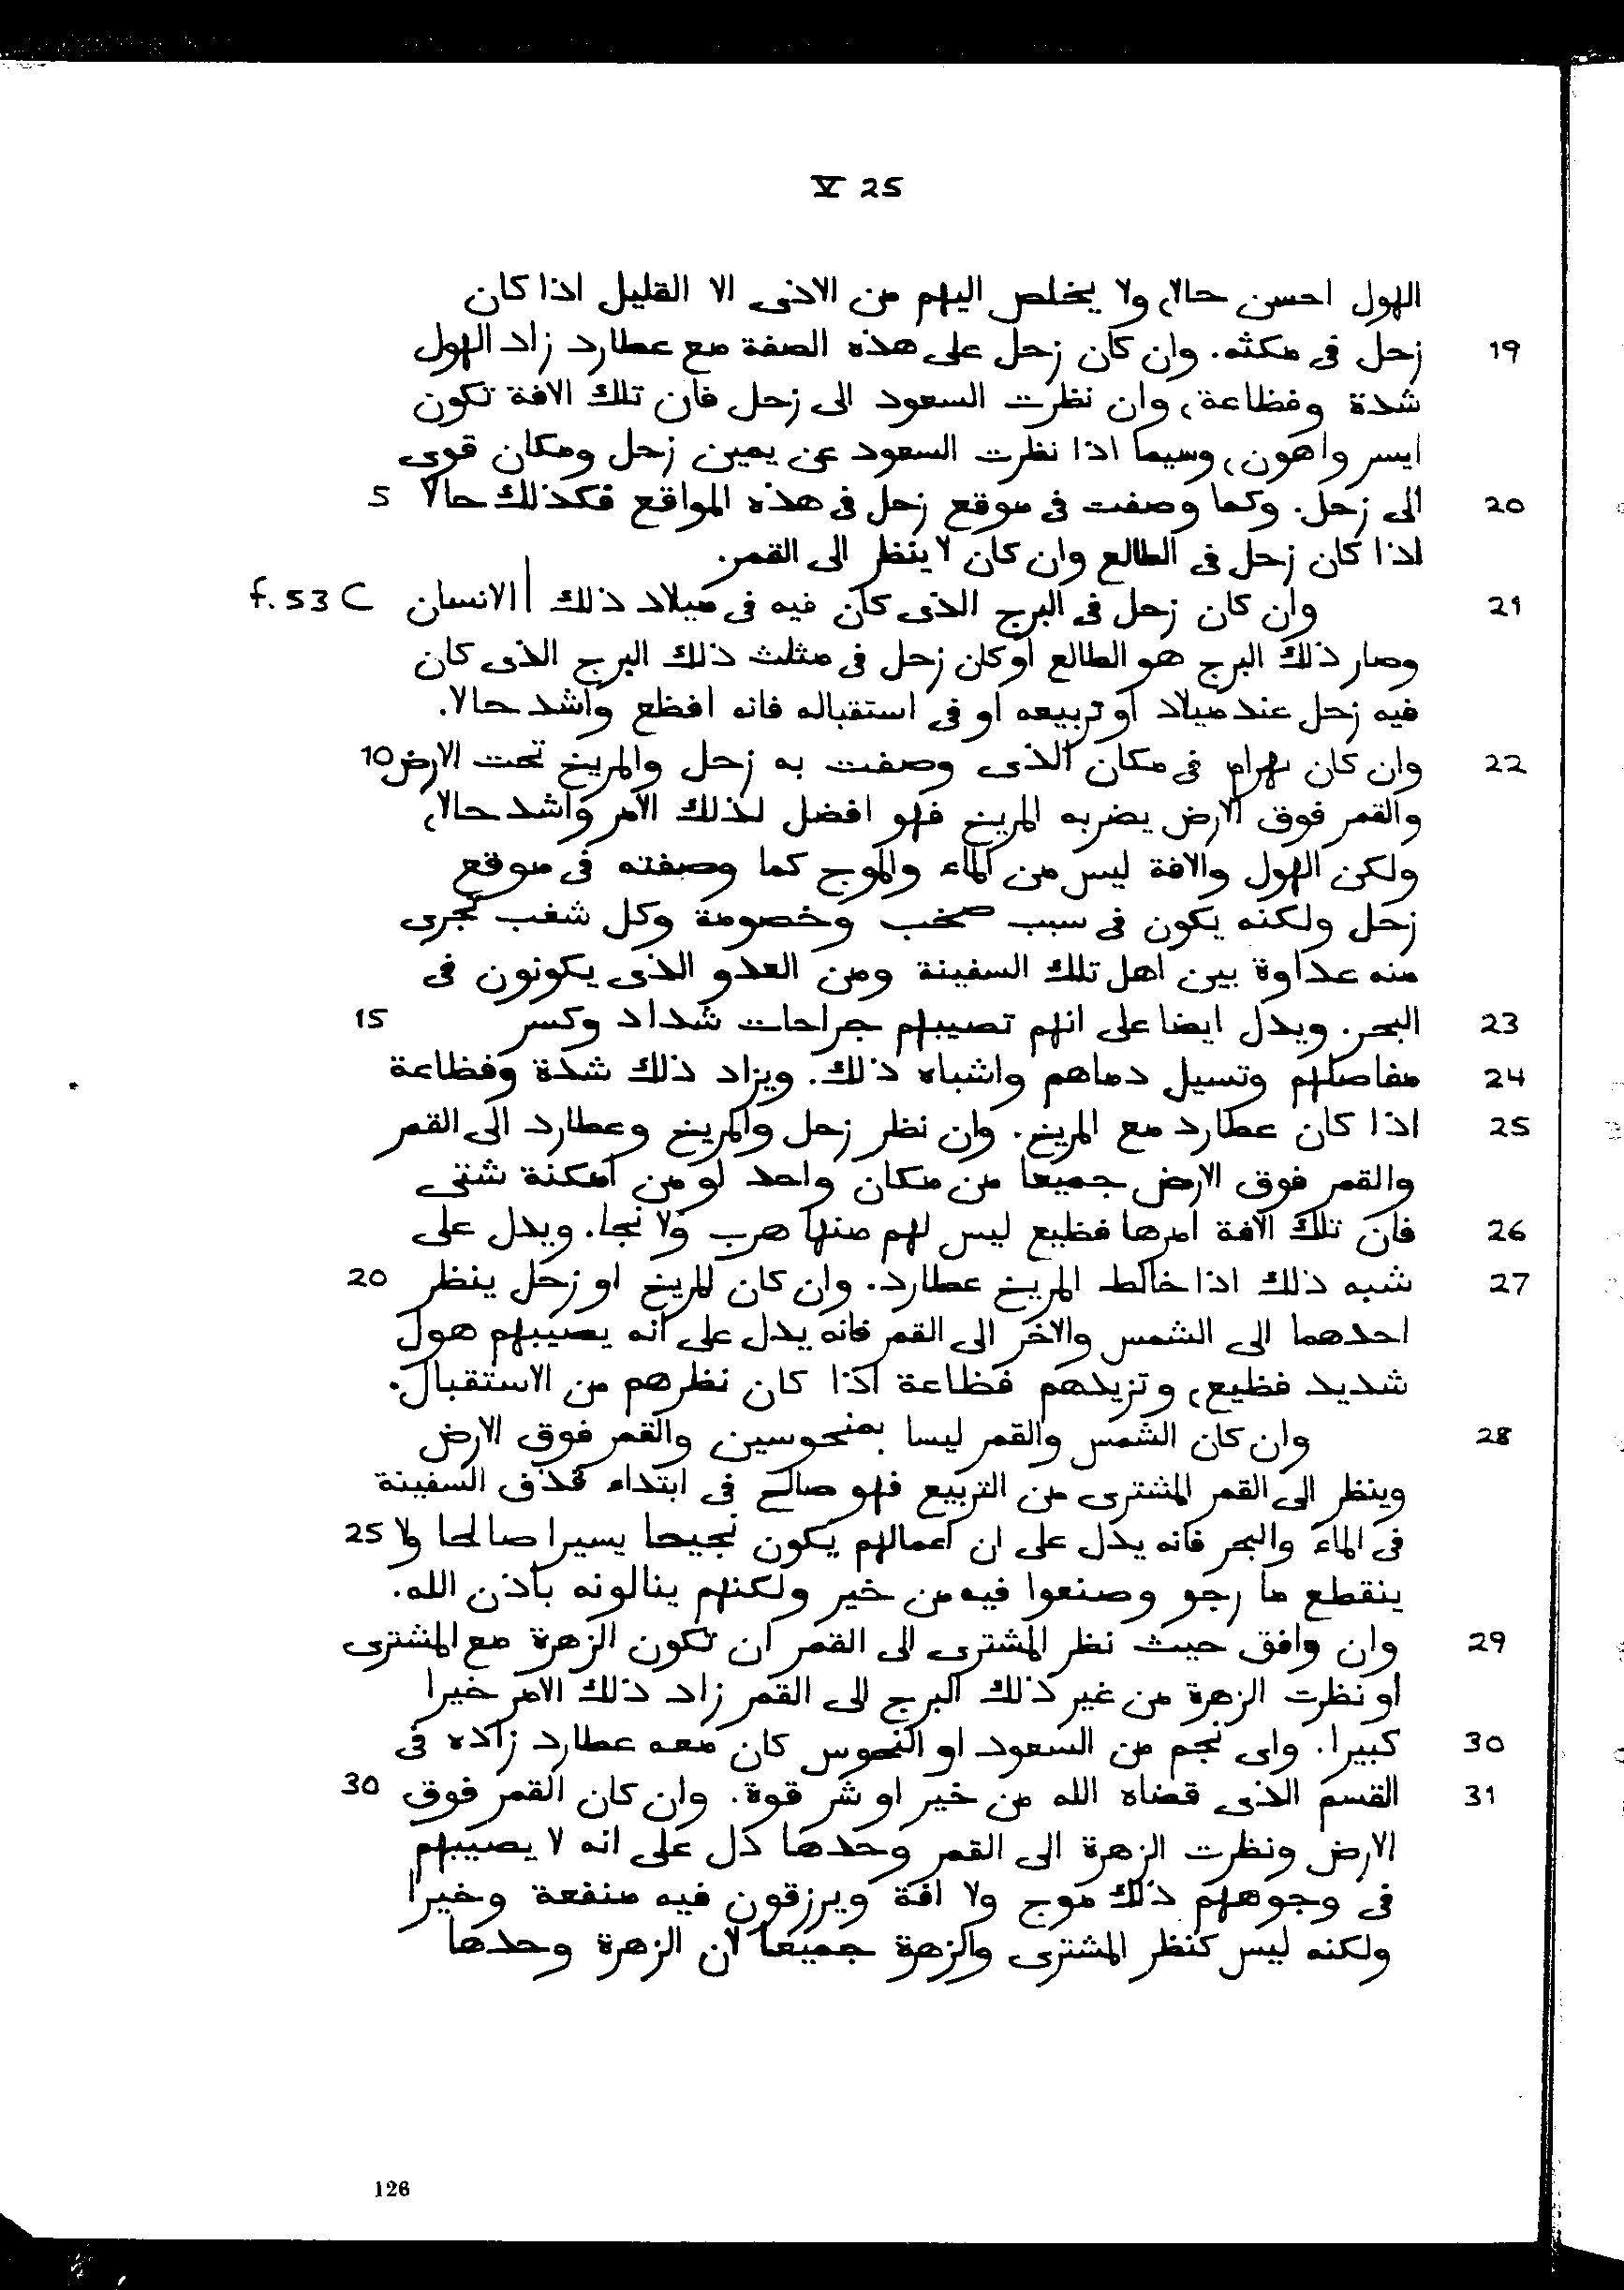 V 25
الهول احسن حالا، ولا يخلص اليهم من الاذى الا القليل اذا كان
19 زحل فى مكثه. وان كان زحل على هذه الصفة مع عطارد زاد الهول
شدة وفظاعة، وان نظرت السعود الى زحل فان تلك الافة تكون
ايسر واهون، وسيما اذا نظرت السعود عن يمين زحل ومكان قوى
20 الى زحل. وكما وصفت فى موقع زحل فى هذه المواقع فكذلك حالا 5
اذا كان زحل فى الطالع وان كان لا ينظر الى القمر.
21 وان كان زحل فى البرج الذى كان فيه فى ميلاد ذلك | الانسان f. 53 C
وصار ذلك البرج هو الطالع او كان زحل فى مثلث ذلك البرج الذى كان
فيه زحل عند ميلاد او تربيعه او فى استقباله فانه افظع واشد حالا.
22 وان كان بهرام فى مكان الذى وصفت به زحل والمريخ تحت الارض 10
والقمر فوق الارض يضربه المريخ فهو افضل لذلك الامر واشد حالا،
ولكن الهول والافة ليس من الماء والموج كما وصفته فى موقع
زحل ولكنه يكون فى سبب صخب وخصومة وكل شغب تجرى
منه عداوة بين اهل تلك السفينة ومن العدو الذى يكونون فى
23 البحر. ويدل ايضا على انهم تصيبهم جراحات شداد وكسر 15
24 مفاصلهم وتسيل دماهم واشباه ذلك. ويزاد ذلك شدة وفظاعة
25 اذا كان عطارد مع المريخ. وان نظر زحل والمريخ وعطارد الى القمر
والقمر فوق الارض جميعا من مكان واحد لو من امكنة شتى
26 فان تلك الافة امرها فظيع ليس لهم منها هرب ولا نجا. ويدل على
27 شبه ذلك اذا خالط المريخ عطارد. وان كان المريخ او زحل ينظر 20
احدهما الى الشمس والاخر الى القمر فانه يدل على انه يصيبهم هول
شديد فظيع، وتزيدهم فظاعة اذا كان نظرهم من الاستقبال.
28 وان كان الشمس والقمر ليسا بمنحوسين والقمر فوق الارض
وينظر الى القمر المشترى من التربيع فهو صالح فى ابتداء قذف السفينة
فى الماء والبحر فانه يدل على ان اعمالهم يكون نجيحا يسيرا صالحا ولا 25
ينقطع ما رجو وصنعوا فيه من خير ولكنهم ينالونه باذن الله.
29 وان وافق حيث نظر المشترى الى القمر ان تكون الزهرة مع المشترى
او نظرت الزهرة من غير ذلك البرج الى القمر زاد ذلك الامر خيرا
30 كبيرا. واى نجم من السعود او النحوس كان معه عطارد زاده فى
31 القسم الذى قضاه الله من خير او شر قوة. وان كان القمر فوق 30
الارض ونظرت الزهرة الى القمر وحدها دل على انه لا يصيبهم
فى وجوههم ذلك موج ولا افة ويرزقون فيه منفعة وخيرا
ولكنه ليس كنظر المشترى والزهرة جميعا لان الزهرة وحدها
126